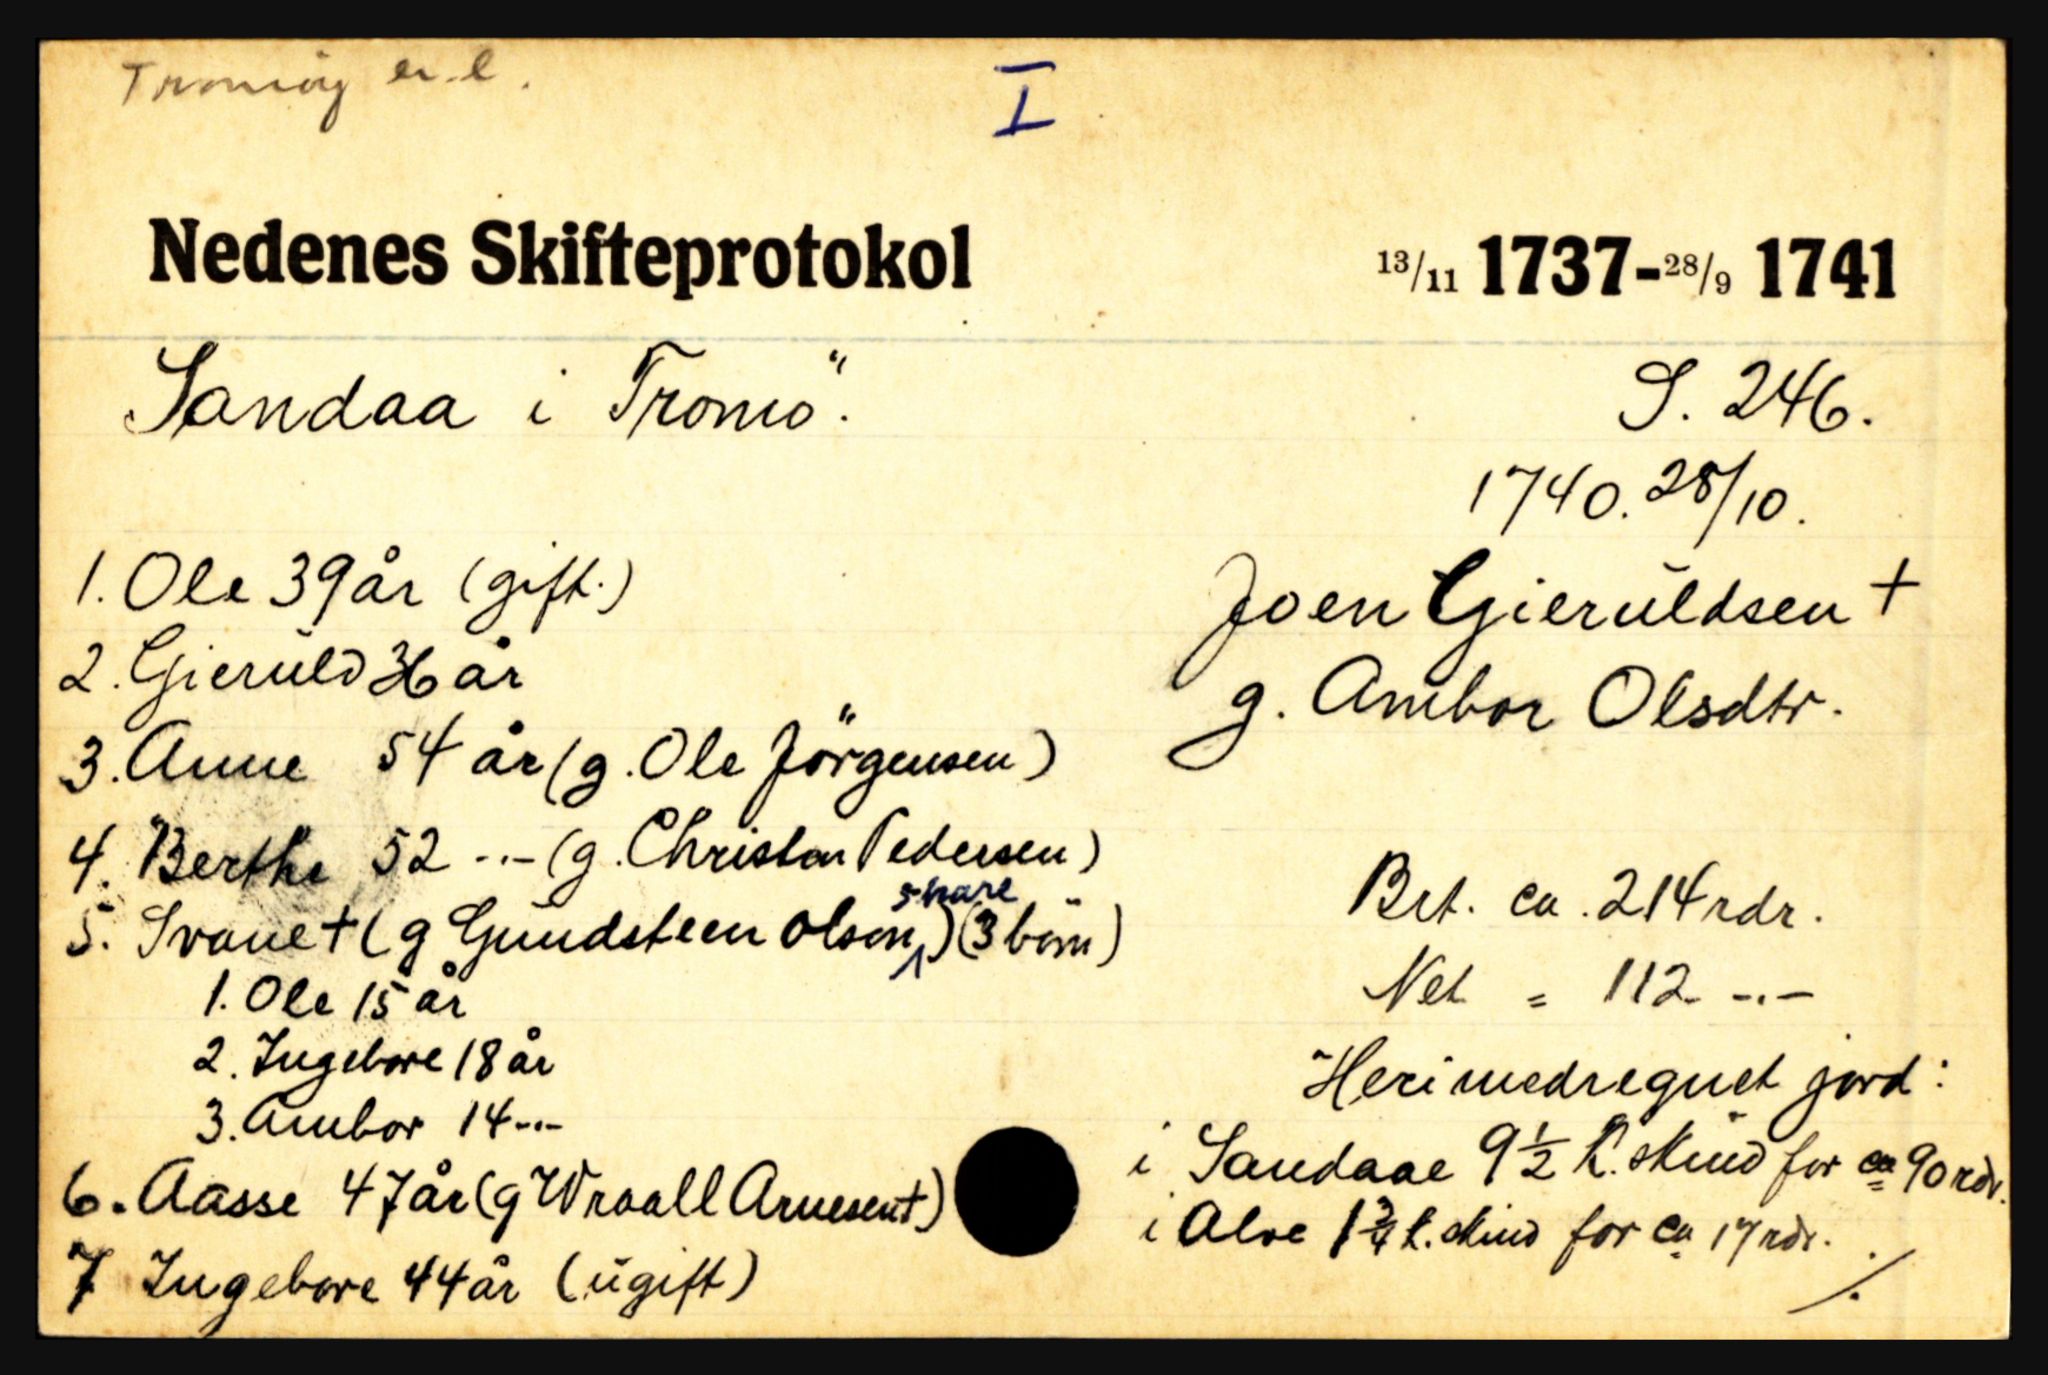 Tromöy
I
Nedenes Skifteprotokol 13/11 1737-28/9 1741
Sandaa i Tromö.
S. 246.
1740. 28/10.
Joen Gieruldsen +
g. Ambor Olsdtr.
1. Ole 39 år (gift.)
2. Gieruld 36 år
3. Anne 54 år (g. Ole Jörgensen)
4. Berthe 52 -"- (g. Christen Pedersen)
5. Svane + (g Gundsteen Olson) (3 börn)
1. Ole 15 år
2. Ingebore 18 år
3. Ambor 14 -"-
6. Aasse 47 år (g Wraall Arnesen +)
7 Ingebore 44 år (ugift)
Brt. ca. 214 rdr.
Net = 112 -"-
Heri medregnet jord:
i Sandaae 9 1/2 k. skind for ca 90 rdr.
i Alve 1 3/4 k. skind for ca 17 rdr.